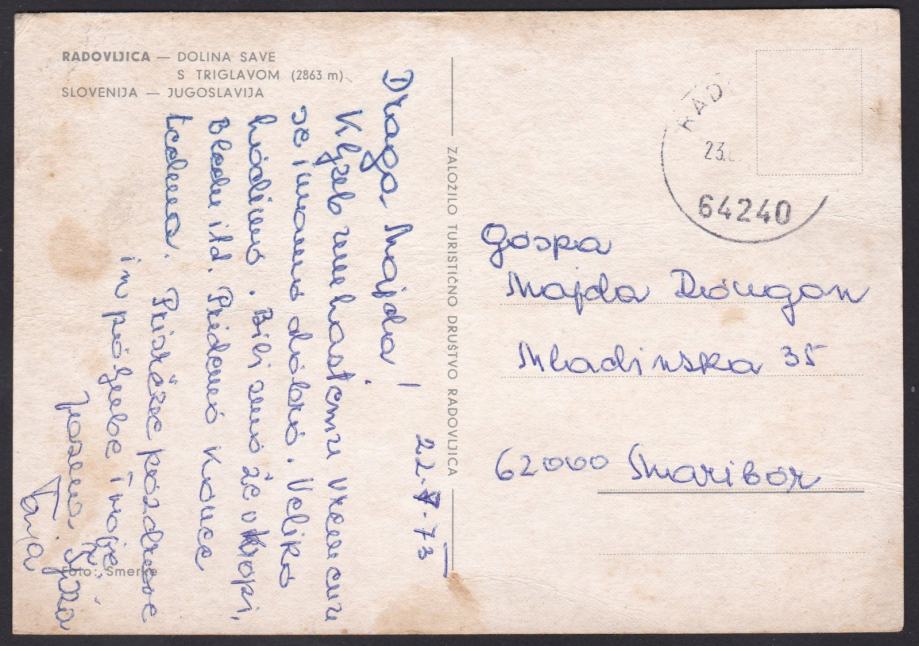 RADOVLJICA — DOLINA SAVE
S TRIGLAVOM (2863 m)
SLOVENIJA — JUGOSLAVIJA
Draga Majda!
Kljub muhastemu vremenu
se imamo dobro. Veliko
hodimo. Bili smo že v Kropi,
Bledu itd. Pridemo konec
tedna. Prisrčne pozdrave
in poljube tvoje
Tanja
22. 7. 73
Foto: Smerke
ZALOŽILO TURISTIČNO DRUŠTVO RADOVLJICA
RAD
23.
64240
Gospa
Majda Dougan
Mladinska 35
62000 Maribor